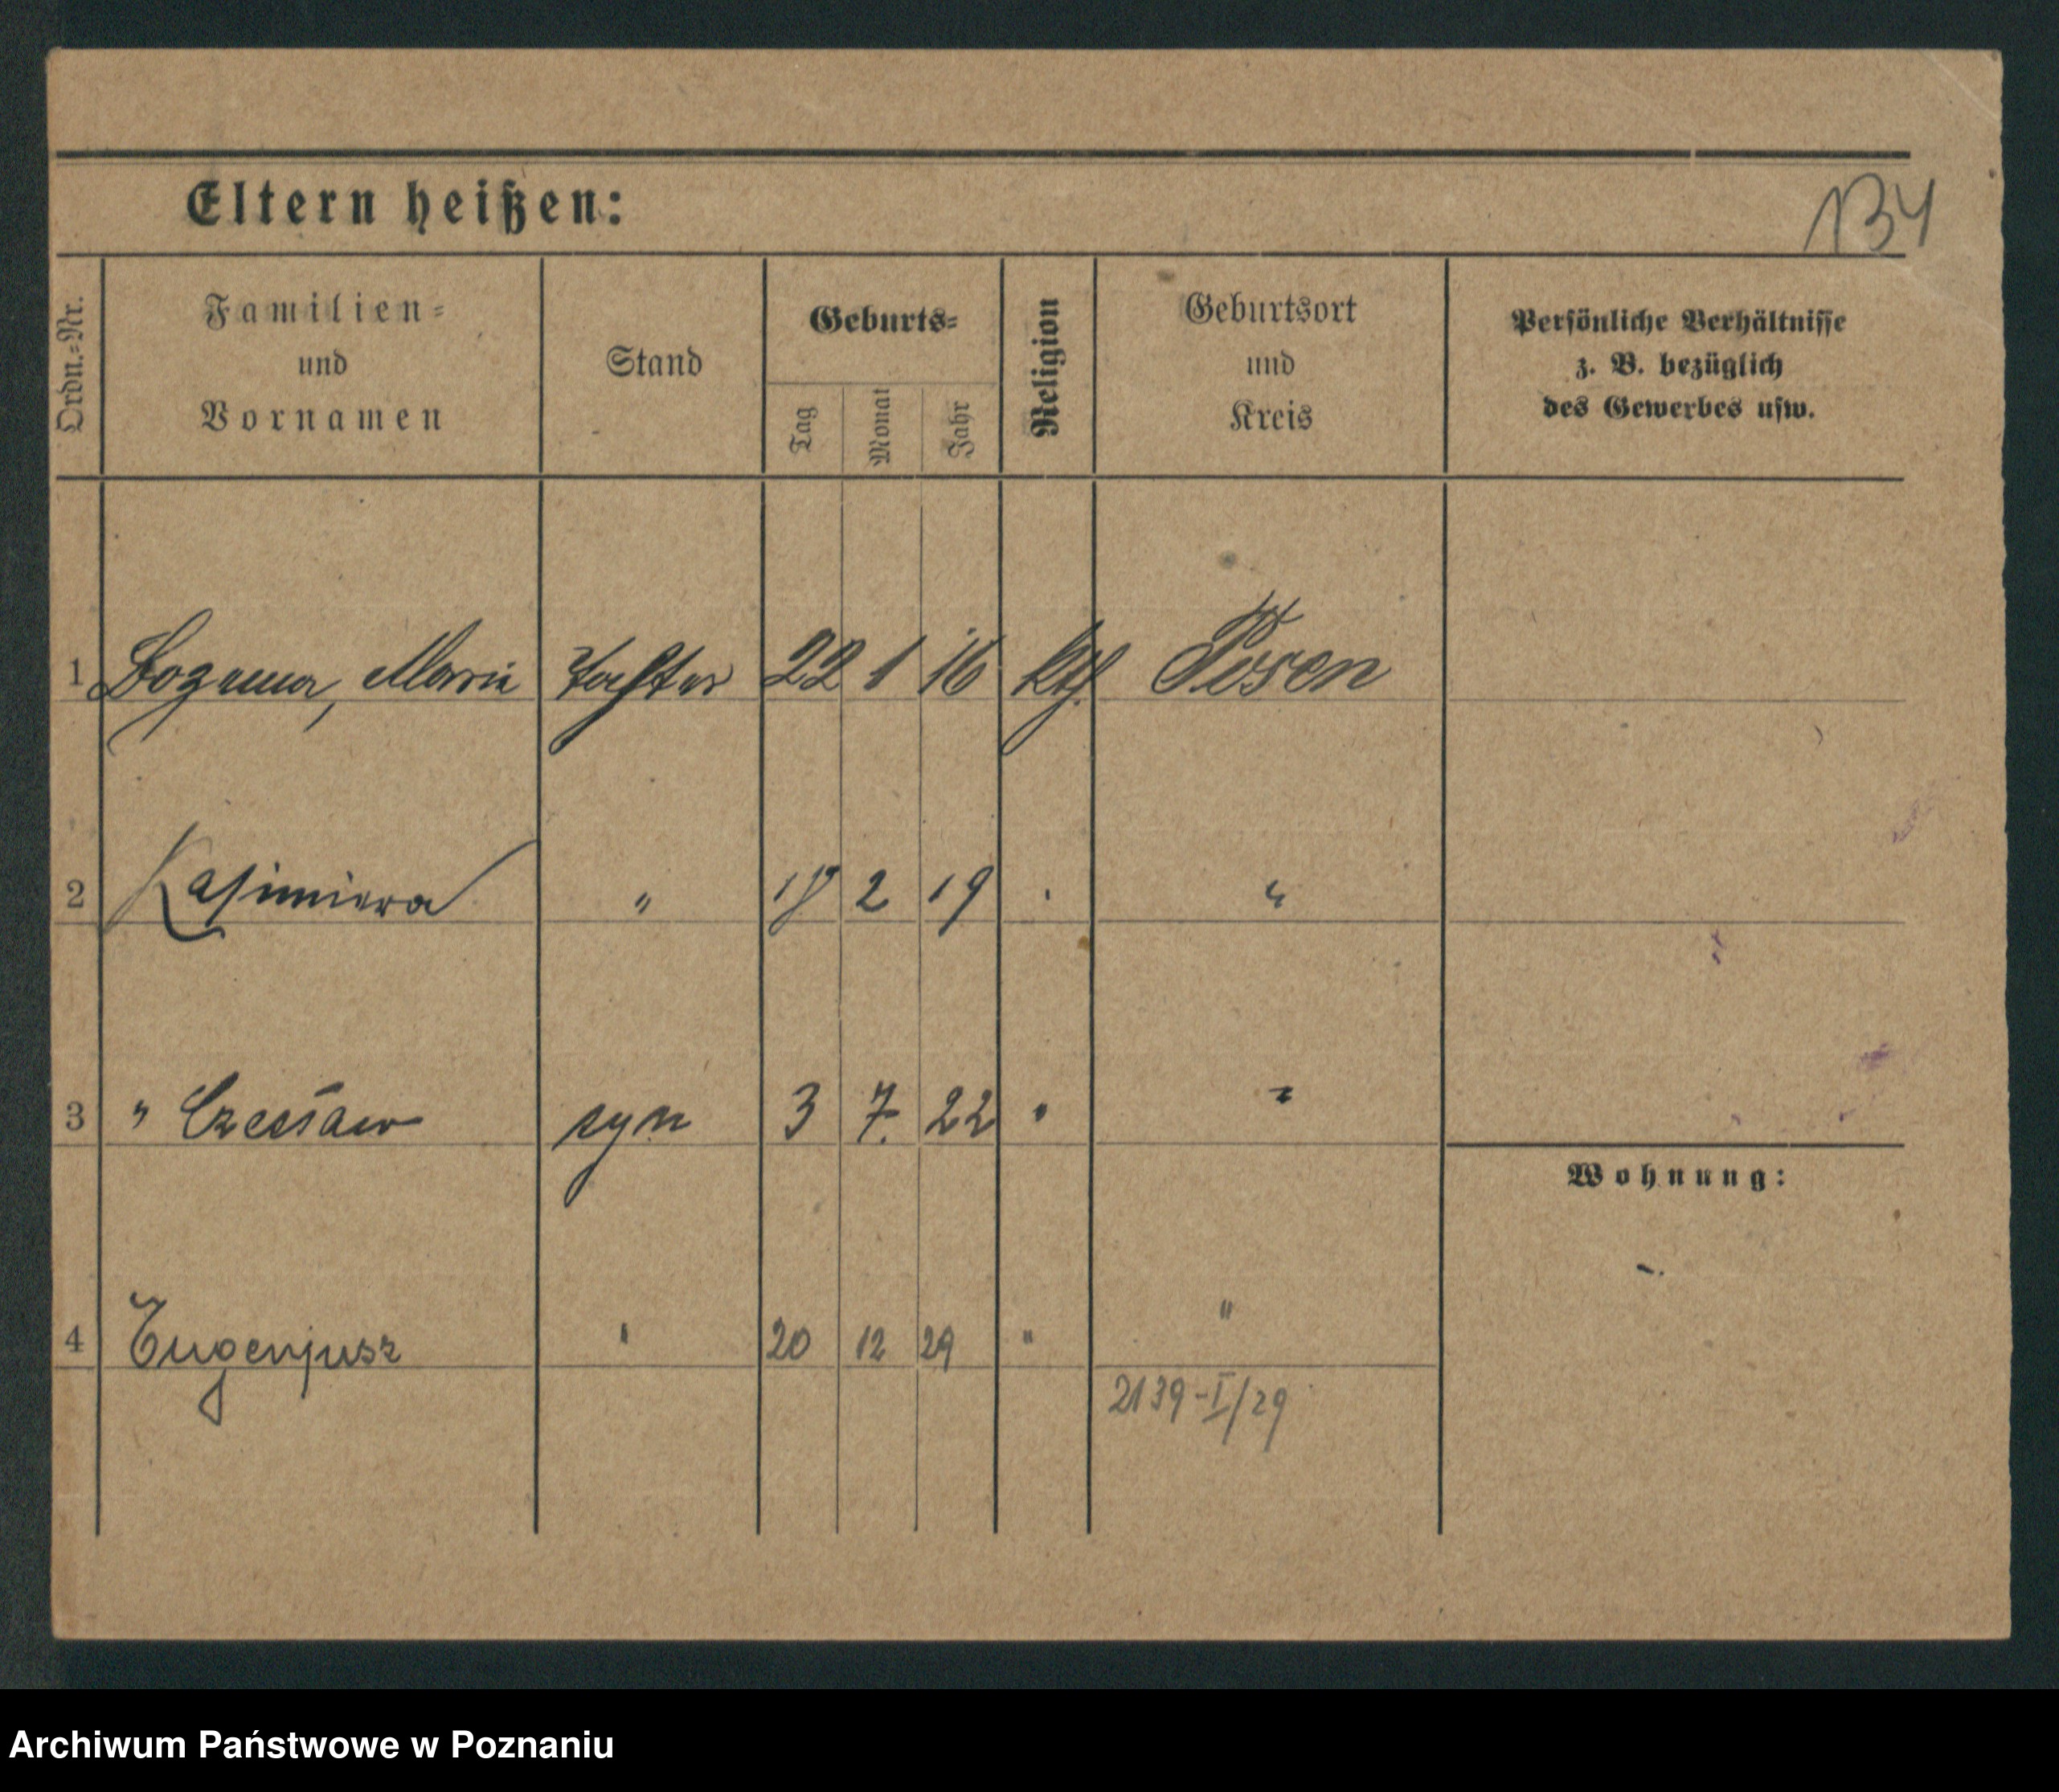 Eltern heißen:
134
Ordn.-Nr.
Familien-
und
Vornamen
Stand
Geburts-
Tag
Monat
Jahr
Religion
Geburtsort
und
Kreis
Persönliche Verhältnisse
z. B. bezüglich
des Gewerbes usw.
1 Maria Tochter 22 1 16 kth Posen
2 Kasimiera " 18 2 19 . "
3 " Czesław syn 3 7. 22 " "
Wohnung:
4 Eugenjusz " 20 12 29 " "
2139-I/29
Archiwum Państwowe w Poznaniu